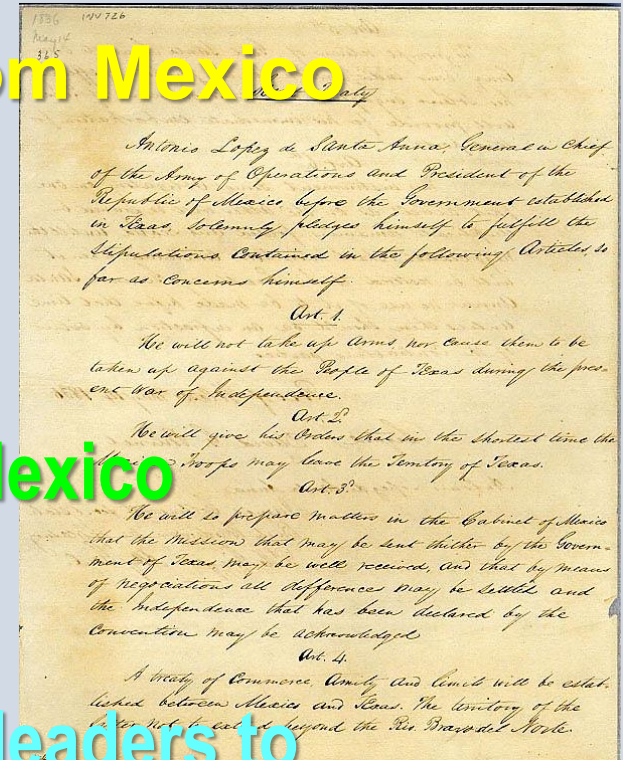 1836
May 14
365
om Mexico
Treaty
Antonio Lopez de Santa Anna, General in Chief
of the Army of Operations and President of the
Republic of Mexico, before the Government established
in Texas, solemnly pledges himself to fulfill the
Stipulations contained in the following Articles, so
far as concerns himself.
Art. 1.
He will not take up Arms, nor cause them to be
taken up against the People of Texas during the pres-
ent War of Independence.
Art. 2d
He will give his Orders that in the shortest time the
Troops may leave the Territory of Texas.
Mexico
Art. 3d
He will so prepare matters in the Cabinet of Mexico
that the Mission that may be sent thither by the Govern-
ment of Texas, may be well received, and that by means
of negociations all differences may be settled and
the Independence that has been declared by the
Convention may be acknowledged
Art. 4.
A treaty of Commerce, Amity and limits will be estab-
lished between Mexico and Texas. The territory of the
latter not to extend beyond the Rio Bravo del Norte.
leaders to